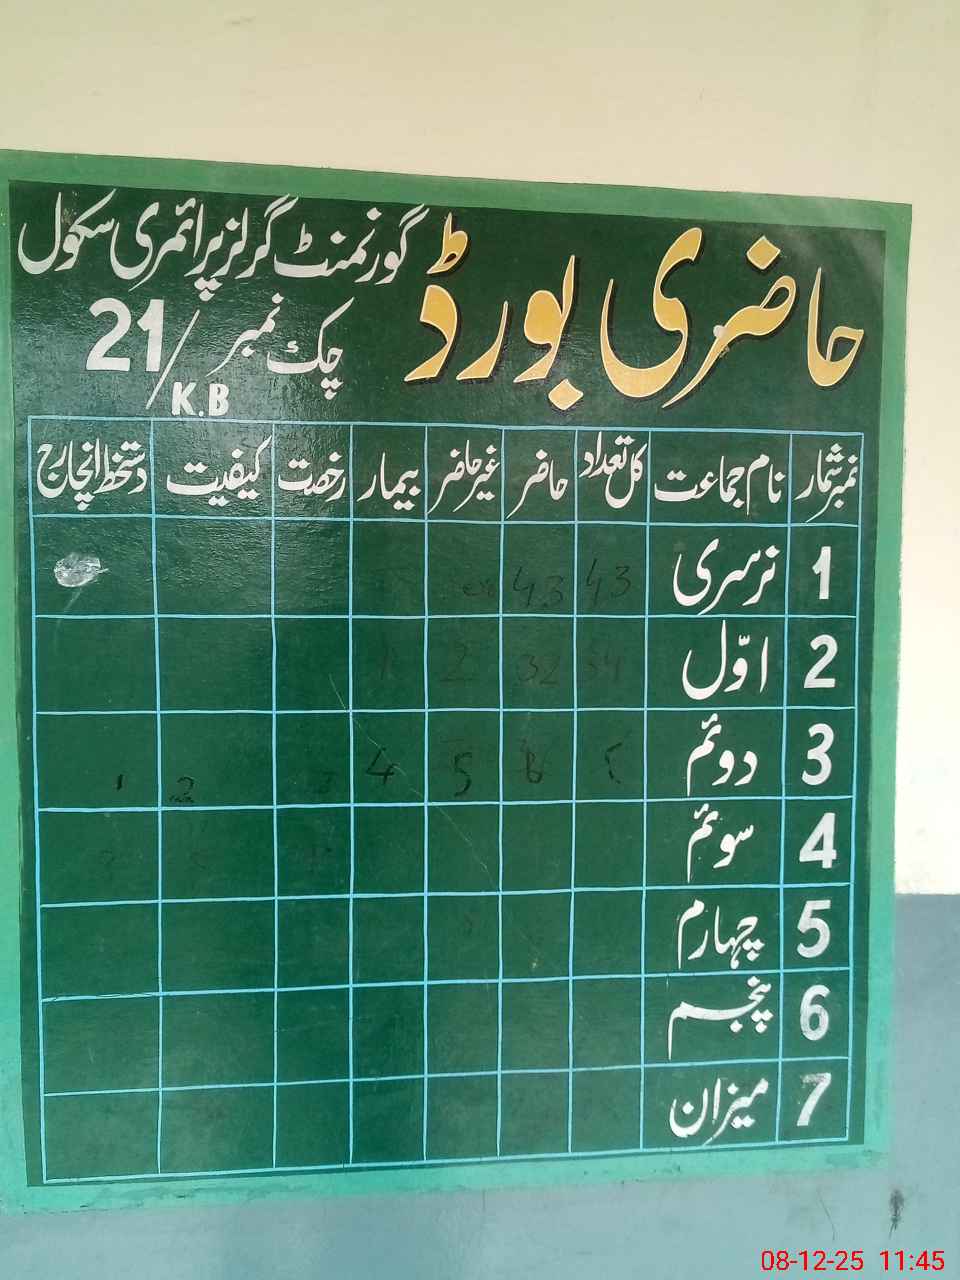 حاضری بورڈ
گورنمنٹ گرلز پرائمری سکول
چک نمبر 21/K.B
نمبر شمار نام جماعت کل تعداد حاضر غیر حاضر بیمار رخصت کیفیت دستخط انچارج
1 نرسری 43 43
2 اوّل 34 32 2 1
3 دوئم 5 4 2 1
4 سوئم
5 چہارم
6 پنجم
7 میزان
08-12-25 11:45